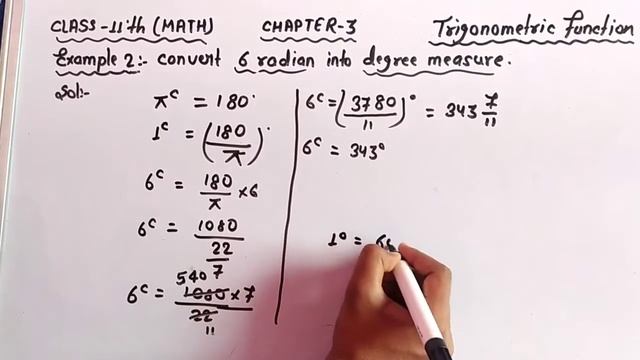 CLASS-11th (MATH) CHAPTER-3 Trigonometric function
Example 2:- convert 6 radian into degree measure.
Sol:-
π^c = 180°
1^c = (180/π)°
6^c = 180/π × 6
6^c = 1080/(22/7)
540
6^c = 1080×7/22
11
6^c = (3780/11)° = 343 7/11
6^c = 343°
1° = 6